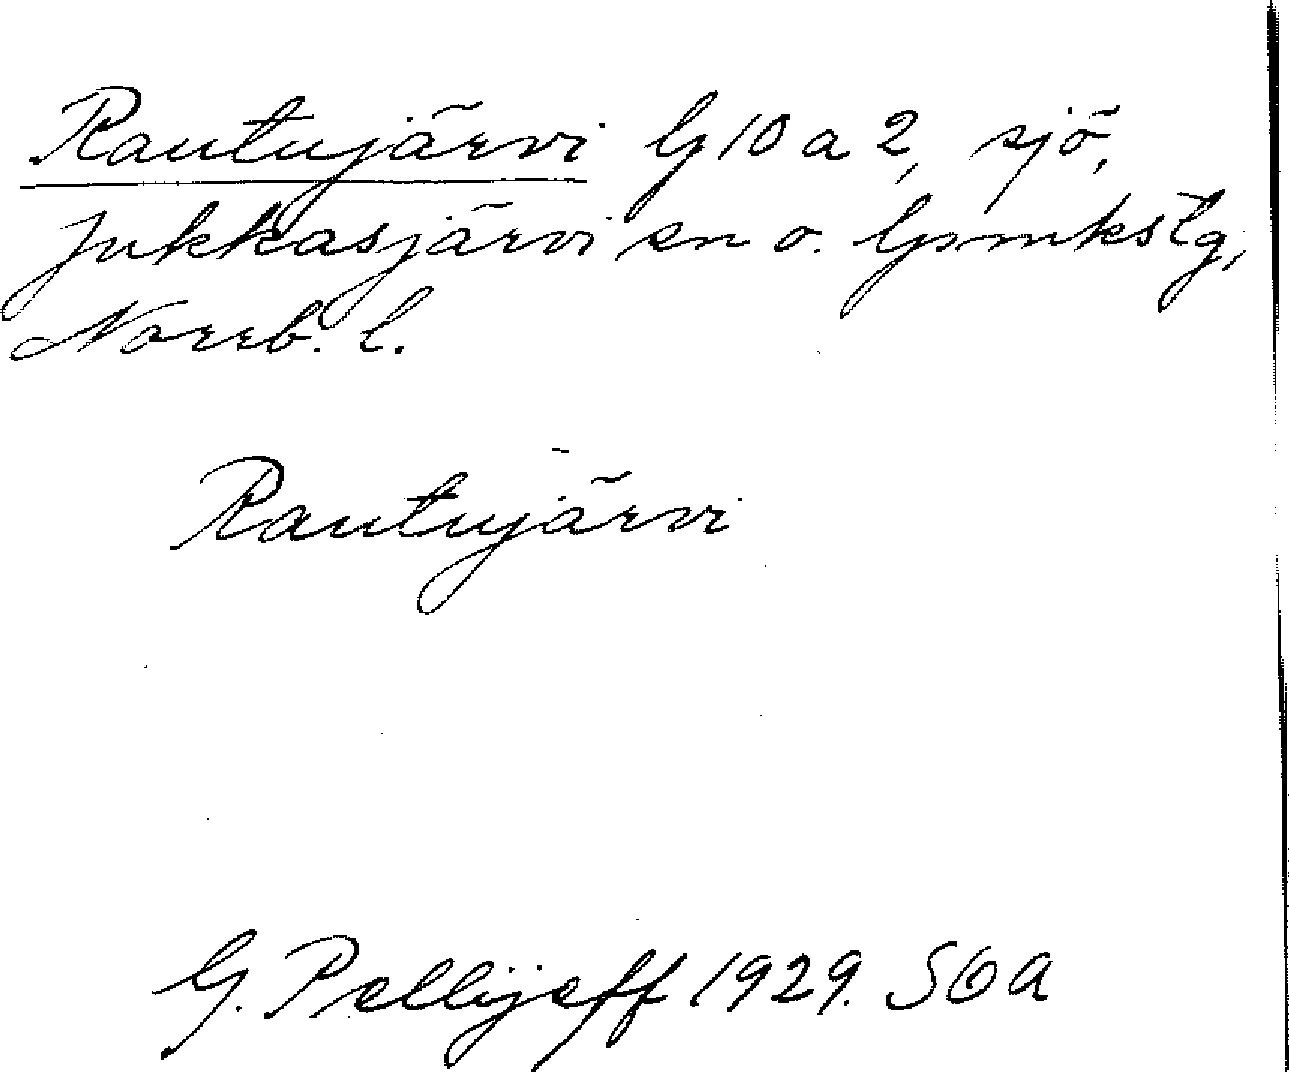 Rautujärvi G 10 a 2, sjö,
Jukkasjärvi sn o. lpmkslg,
Norrb. l.
Rautujärvi
G. Pellijeff 1929. SOA